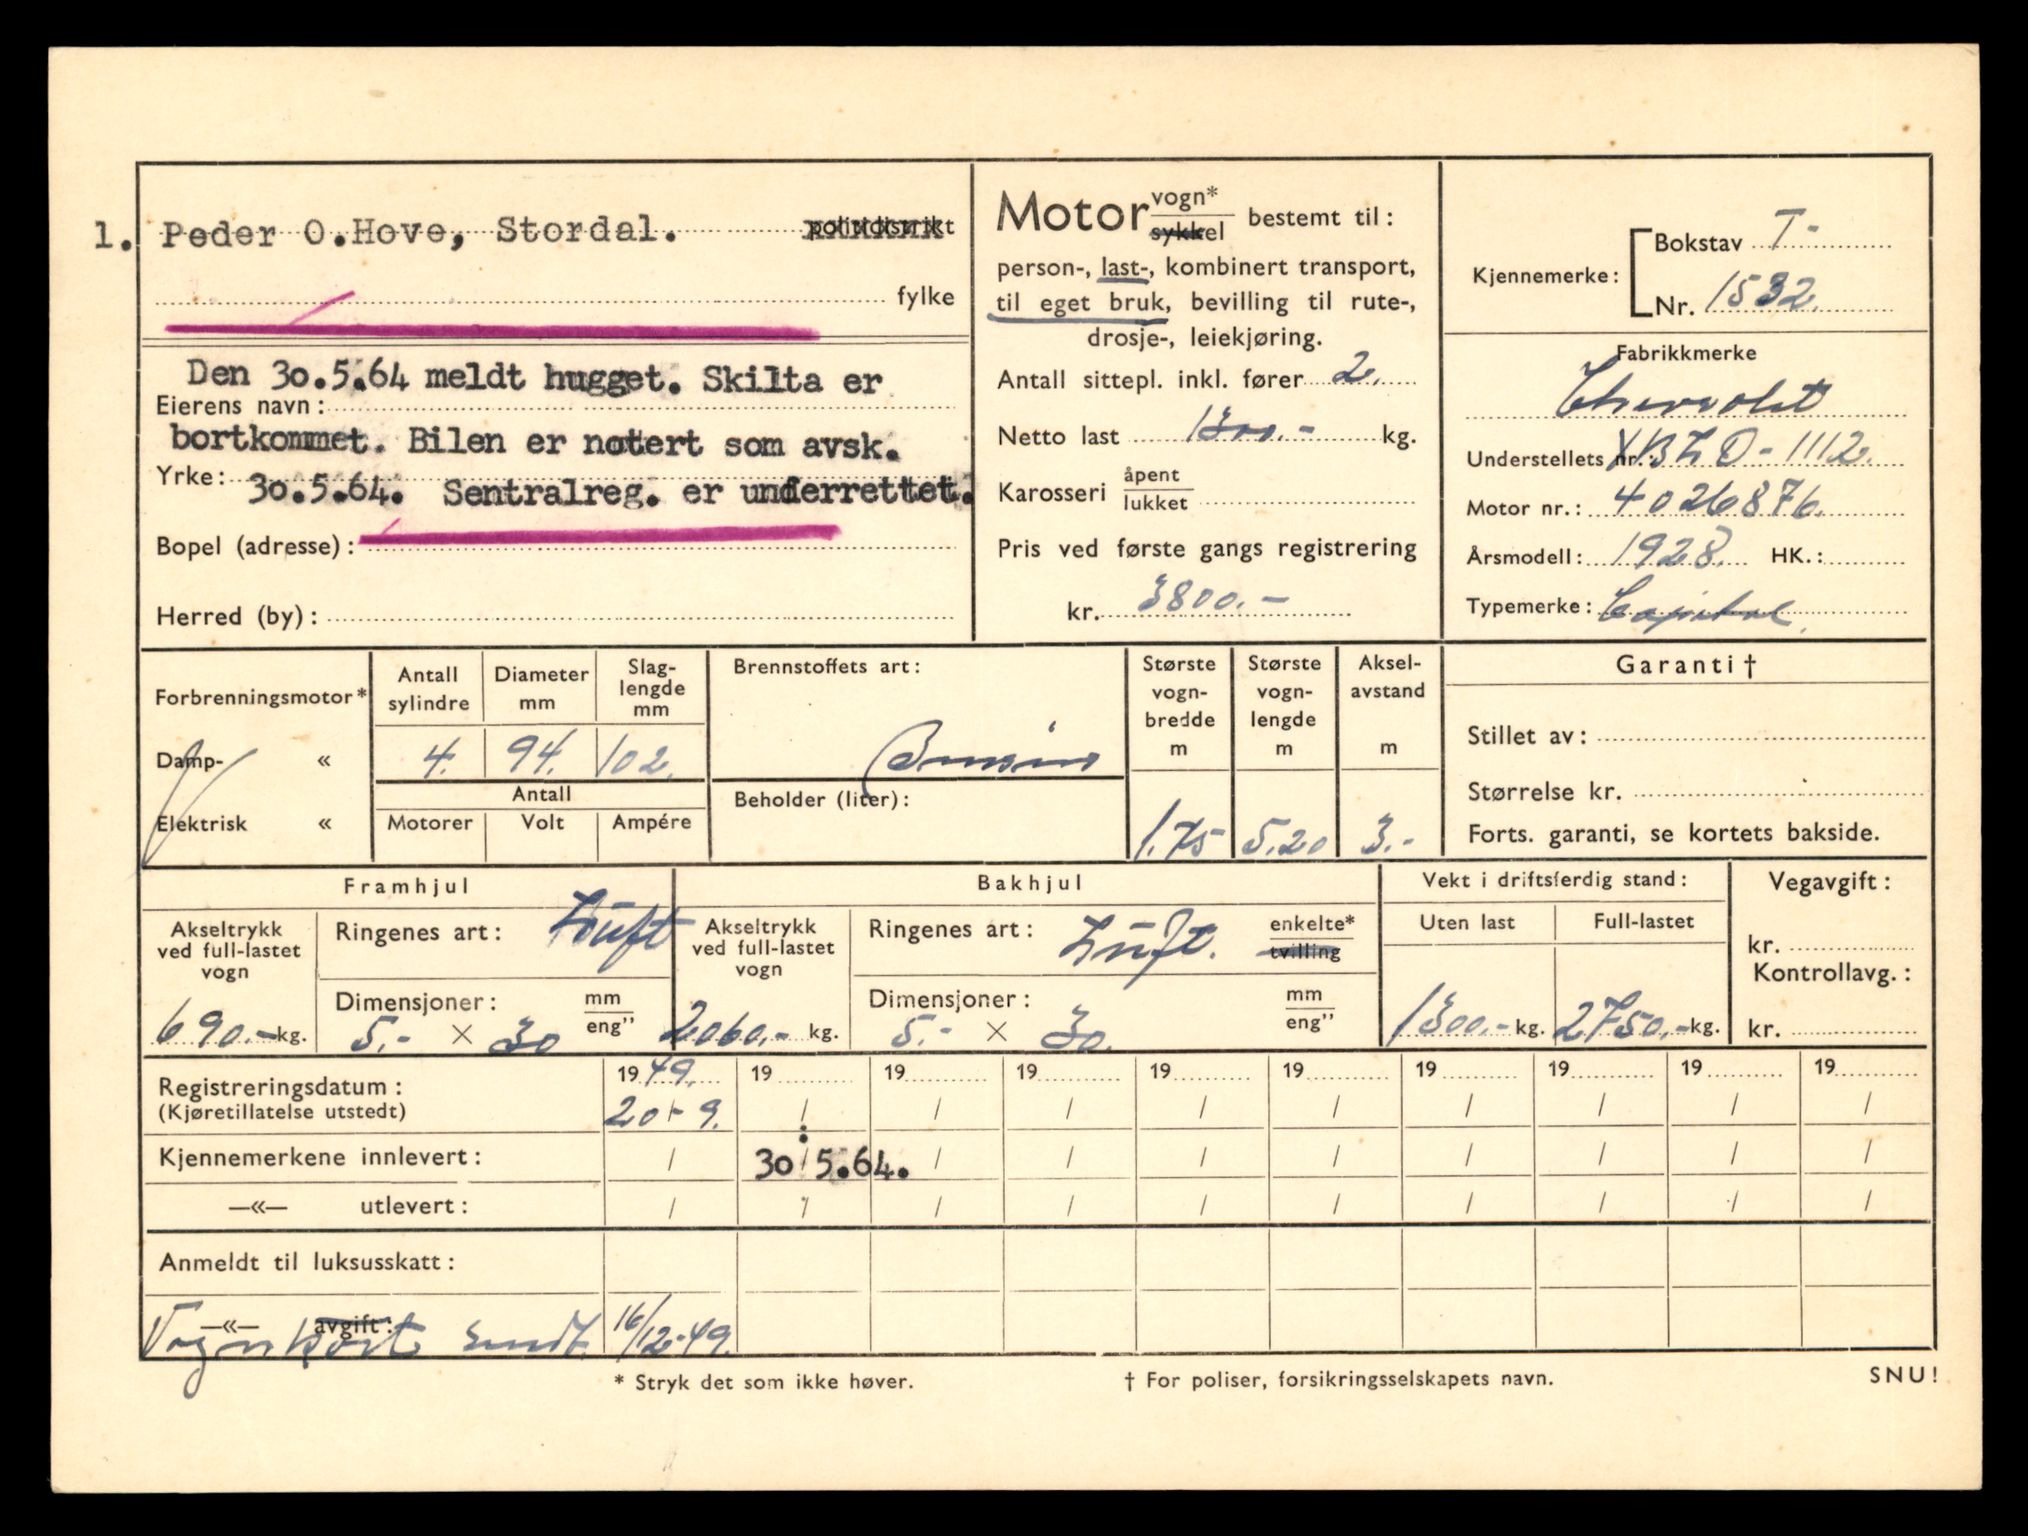 1. Peder O.Hove, Stordal. politidistrikt
fylke
Den 30.5.64 meldt hugget. Skilta er
Eierens navn:
bortkommet. Bilen er notert som avsk.
Yrke:
30.5.64. Sentralreg. er underrettet.
Bopel (adresse):
Herred (by):
Motor vogn* bestemt til:
sykkel
person-, last-, kombinert transport,
til eget bruk, bevilling til rute-,
drosje-, leiekjøring.
Antall sittepl. inkl. fører 2.
Netto last 1300.- kg.
Karosseri åpent
lukket
Pris ved første gangs registrering
kr. 3800.-
Kjennemerke: Bokstav T-
Nr. 1532.
Fabrikkmerke
Chevrolet
Understellets nr.: XBLO-1112.
Motor nr.: 4026876.
Årsmodell: 1928. HK.:
Typemerke: Capital.
Forbrenningsmotor*
Damp- «
Elektrisk «
Antall sylindre Diameter mm Slag-lengde mm
4. 94. 102.
Antall
Motorer Volt Ampére
Brennstoffets art:
Bensin
Beholder (liter):
Største vogn-bredde m Største vogn-lengde m Aksel-avstand m
1.75 5.20 3.-
Garanti †
Stillet av:
Størrelse kr.
Forts. garanti, se kortets bakside.
Framhjul
Akseltrykk ved full-lastet vogn
690.- kg.
Ringenes art: Luft
Dimensjoner: mm
eng"
5.- × 30
Bakhjul
Akseltrykk ved full-lastet vogn
2060.- kg.
Ringenes art: Luft. enkelte*
tvilling
Dimensjoner: mm
eng"
5.- × 30.
Vekt i driftsferdig stand:
Uten last Full-lastet
1300.- kg. 2750.- kg.
Vegavgift:
kr.
Kontrollavg.:
kr.
Registreringsdatum: 1949. 19 19 19 19 19 19 19 19 19
(Kjøretillatelse utstedt) 20/-9. / / / / / / / / /
Kjennemerkene innlevert: / 30/5.64. / / / / / / / /
—«— utlevert: / / / / / / / / / /
Anmeldt til luksusskatt:
—«— avgift:
Vognkort sendt 16/12-49.
* Stryk det som ikke høver.
† For poliser, forsikringsselskapets navn.
SNU!